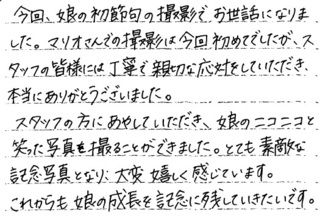 今回、娘の初節句の撮影で、お世話になりま
した。マリオさんでの撮影は今回初めてでしたが、ス
タッフの皆様には丁寧で親切な応対をしていただき、
本当にありがとうございました。
スタッフの方にあやしていただき、娘のニコニコと
笑った写真を撮ることができました。とても素敵な
記念写真となり、大変嬉しく感じています。
これからも娘の成長を記念に残していきたいです。